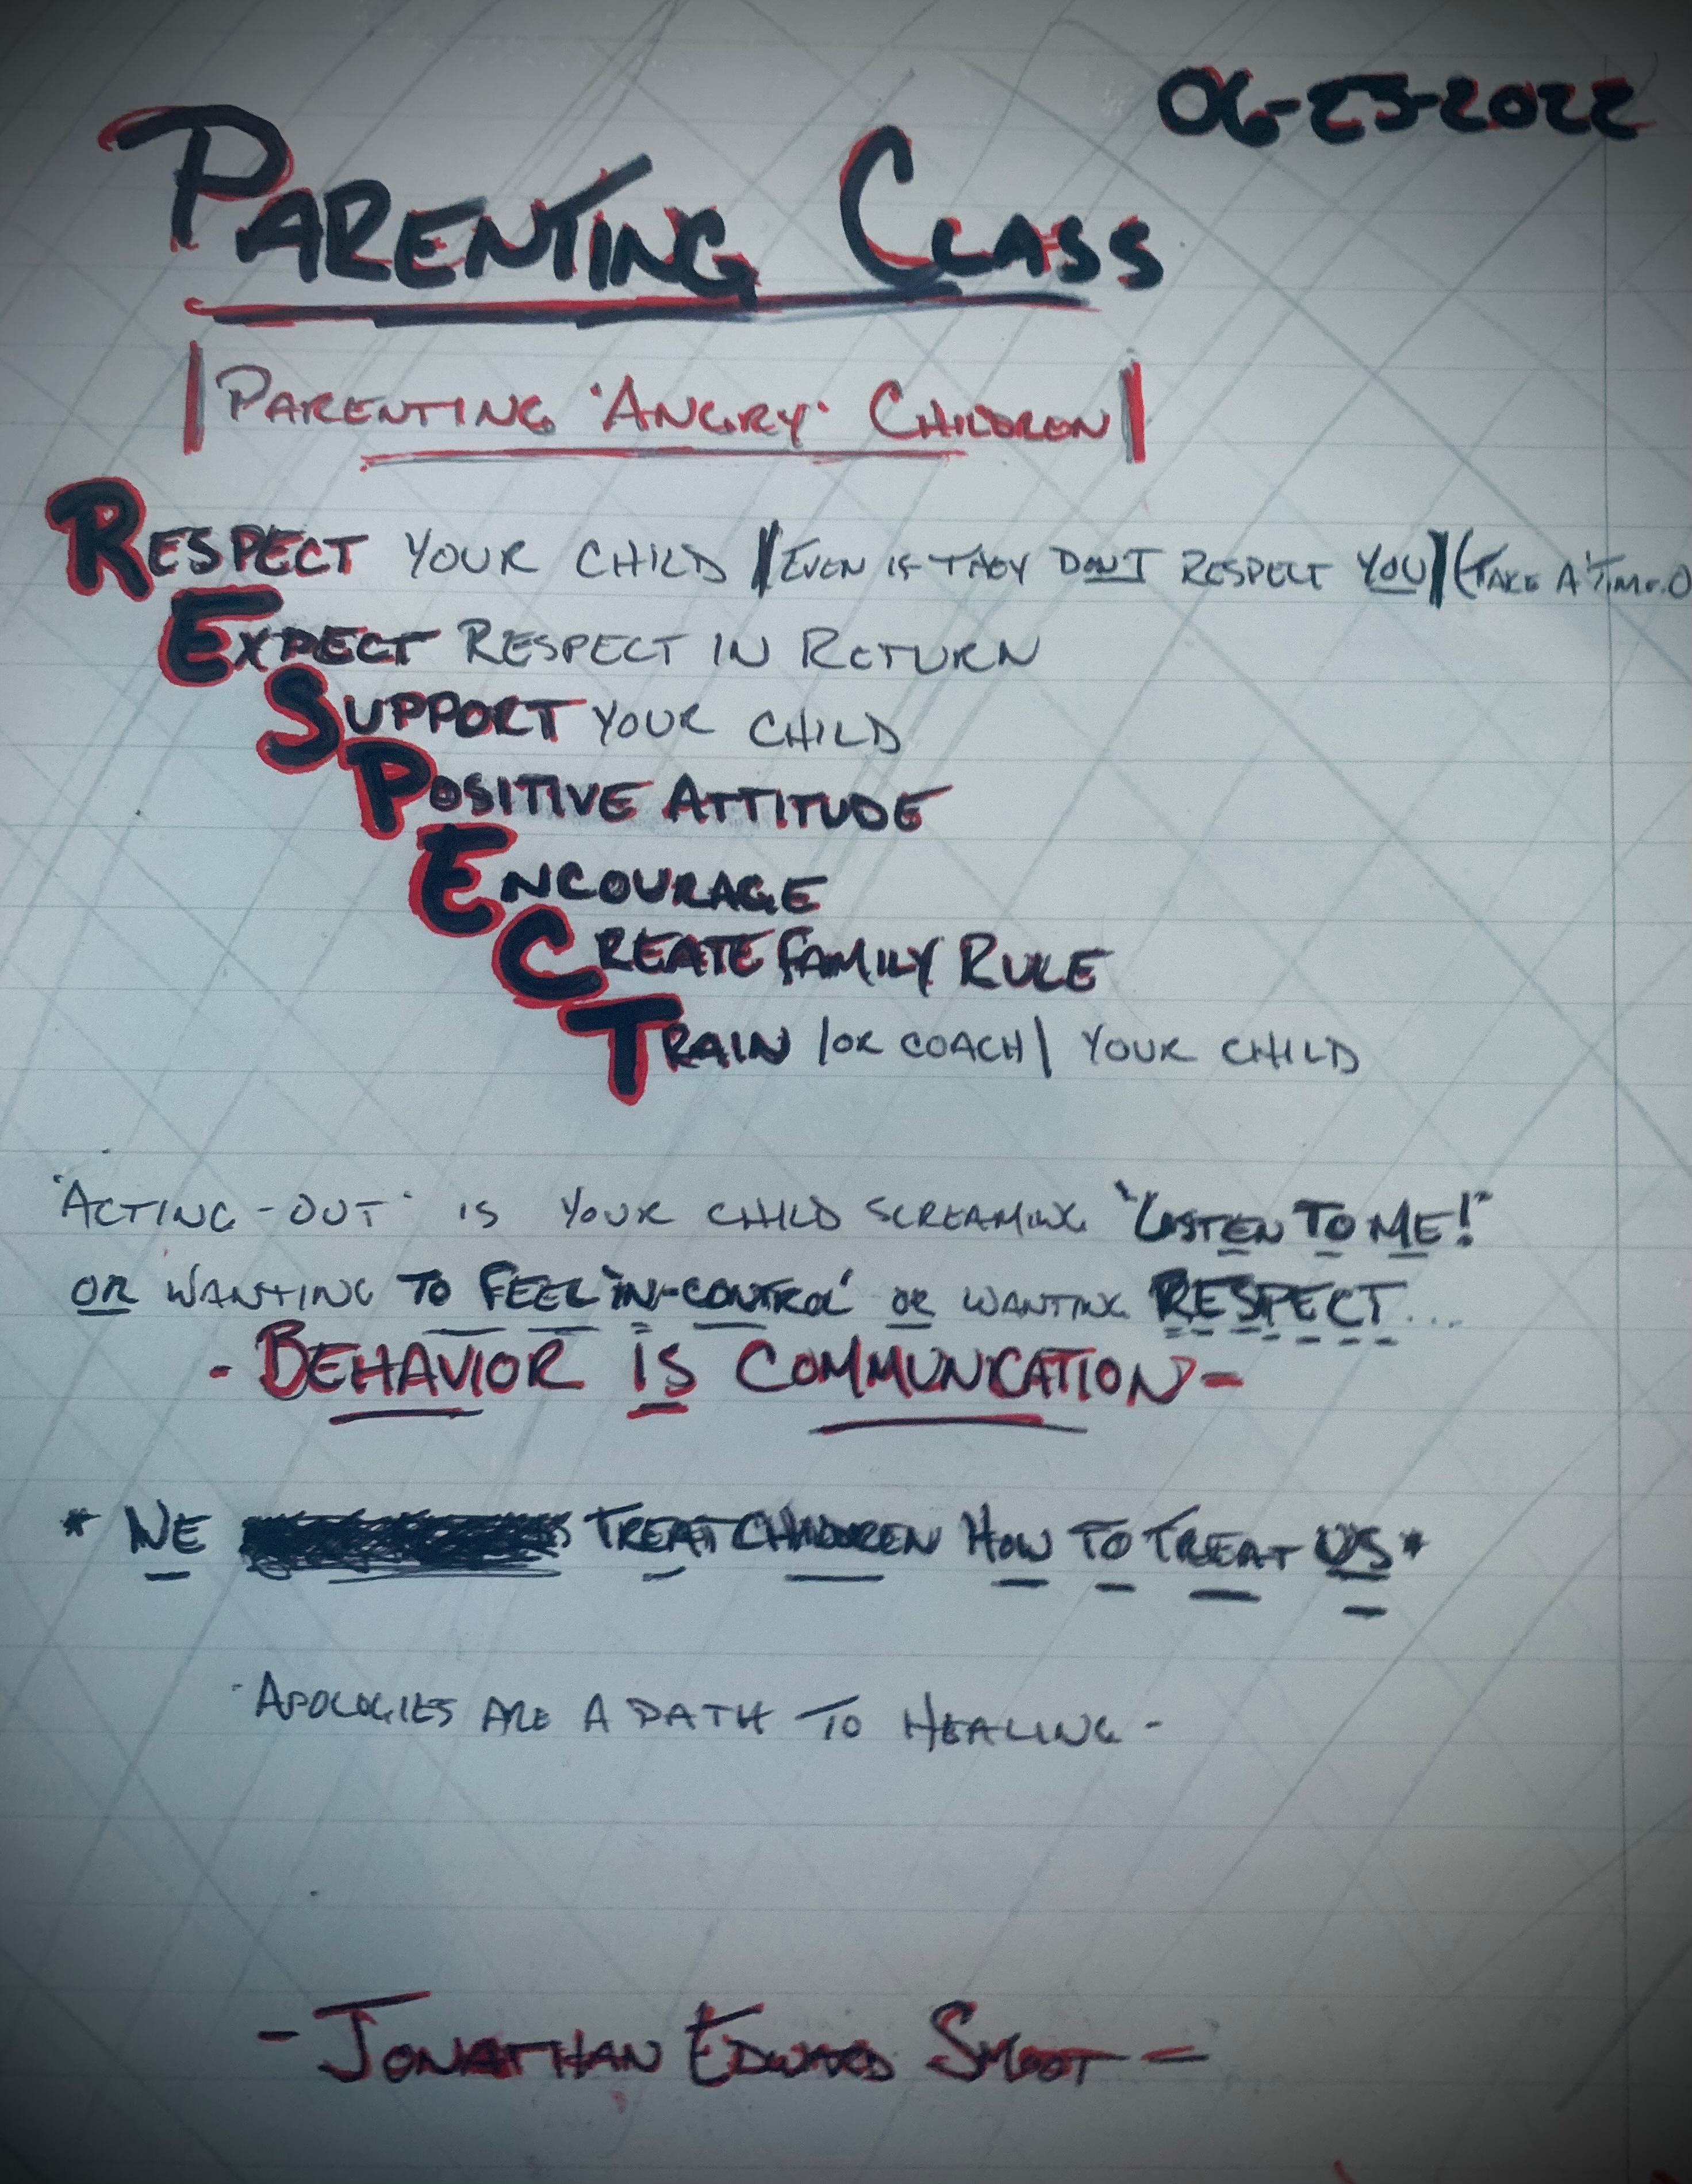 06-23-2022
PARENTING CLASS
|PARENTING 'ANGRY' CHILDREN|
RESPECT YOUR CHILD |EVEN IF THEY DON'T RESPECT YOU| (TAKE A 'TIME-O
EXPECT RESPECT IN RETURN
SUPPORT YOUR CHILD
POSITIVE ATTITUDE
ENCOURAGE
CREATE FAMILY RULE
TRAIN |OR COACH| YOUR CHILD
'ACTING-OUT' IS YOUR CHILD SCREAMING "LISTEN TO ME!"
OR WANTING TO FEEL 'IN-CONTROL' OR WANTING RESPECT...
- BEHAVIOR IS COMMUNICATION -
* WE TREAT CHILDREN HOW TO TREAT US *
- APOLOGIES ARE A PATH TO HEALING -
- JONATHAN EDWARD SMOOT -